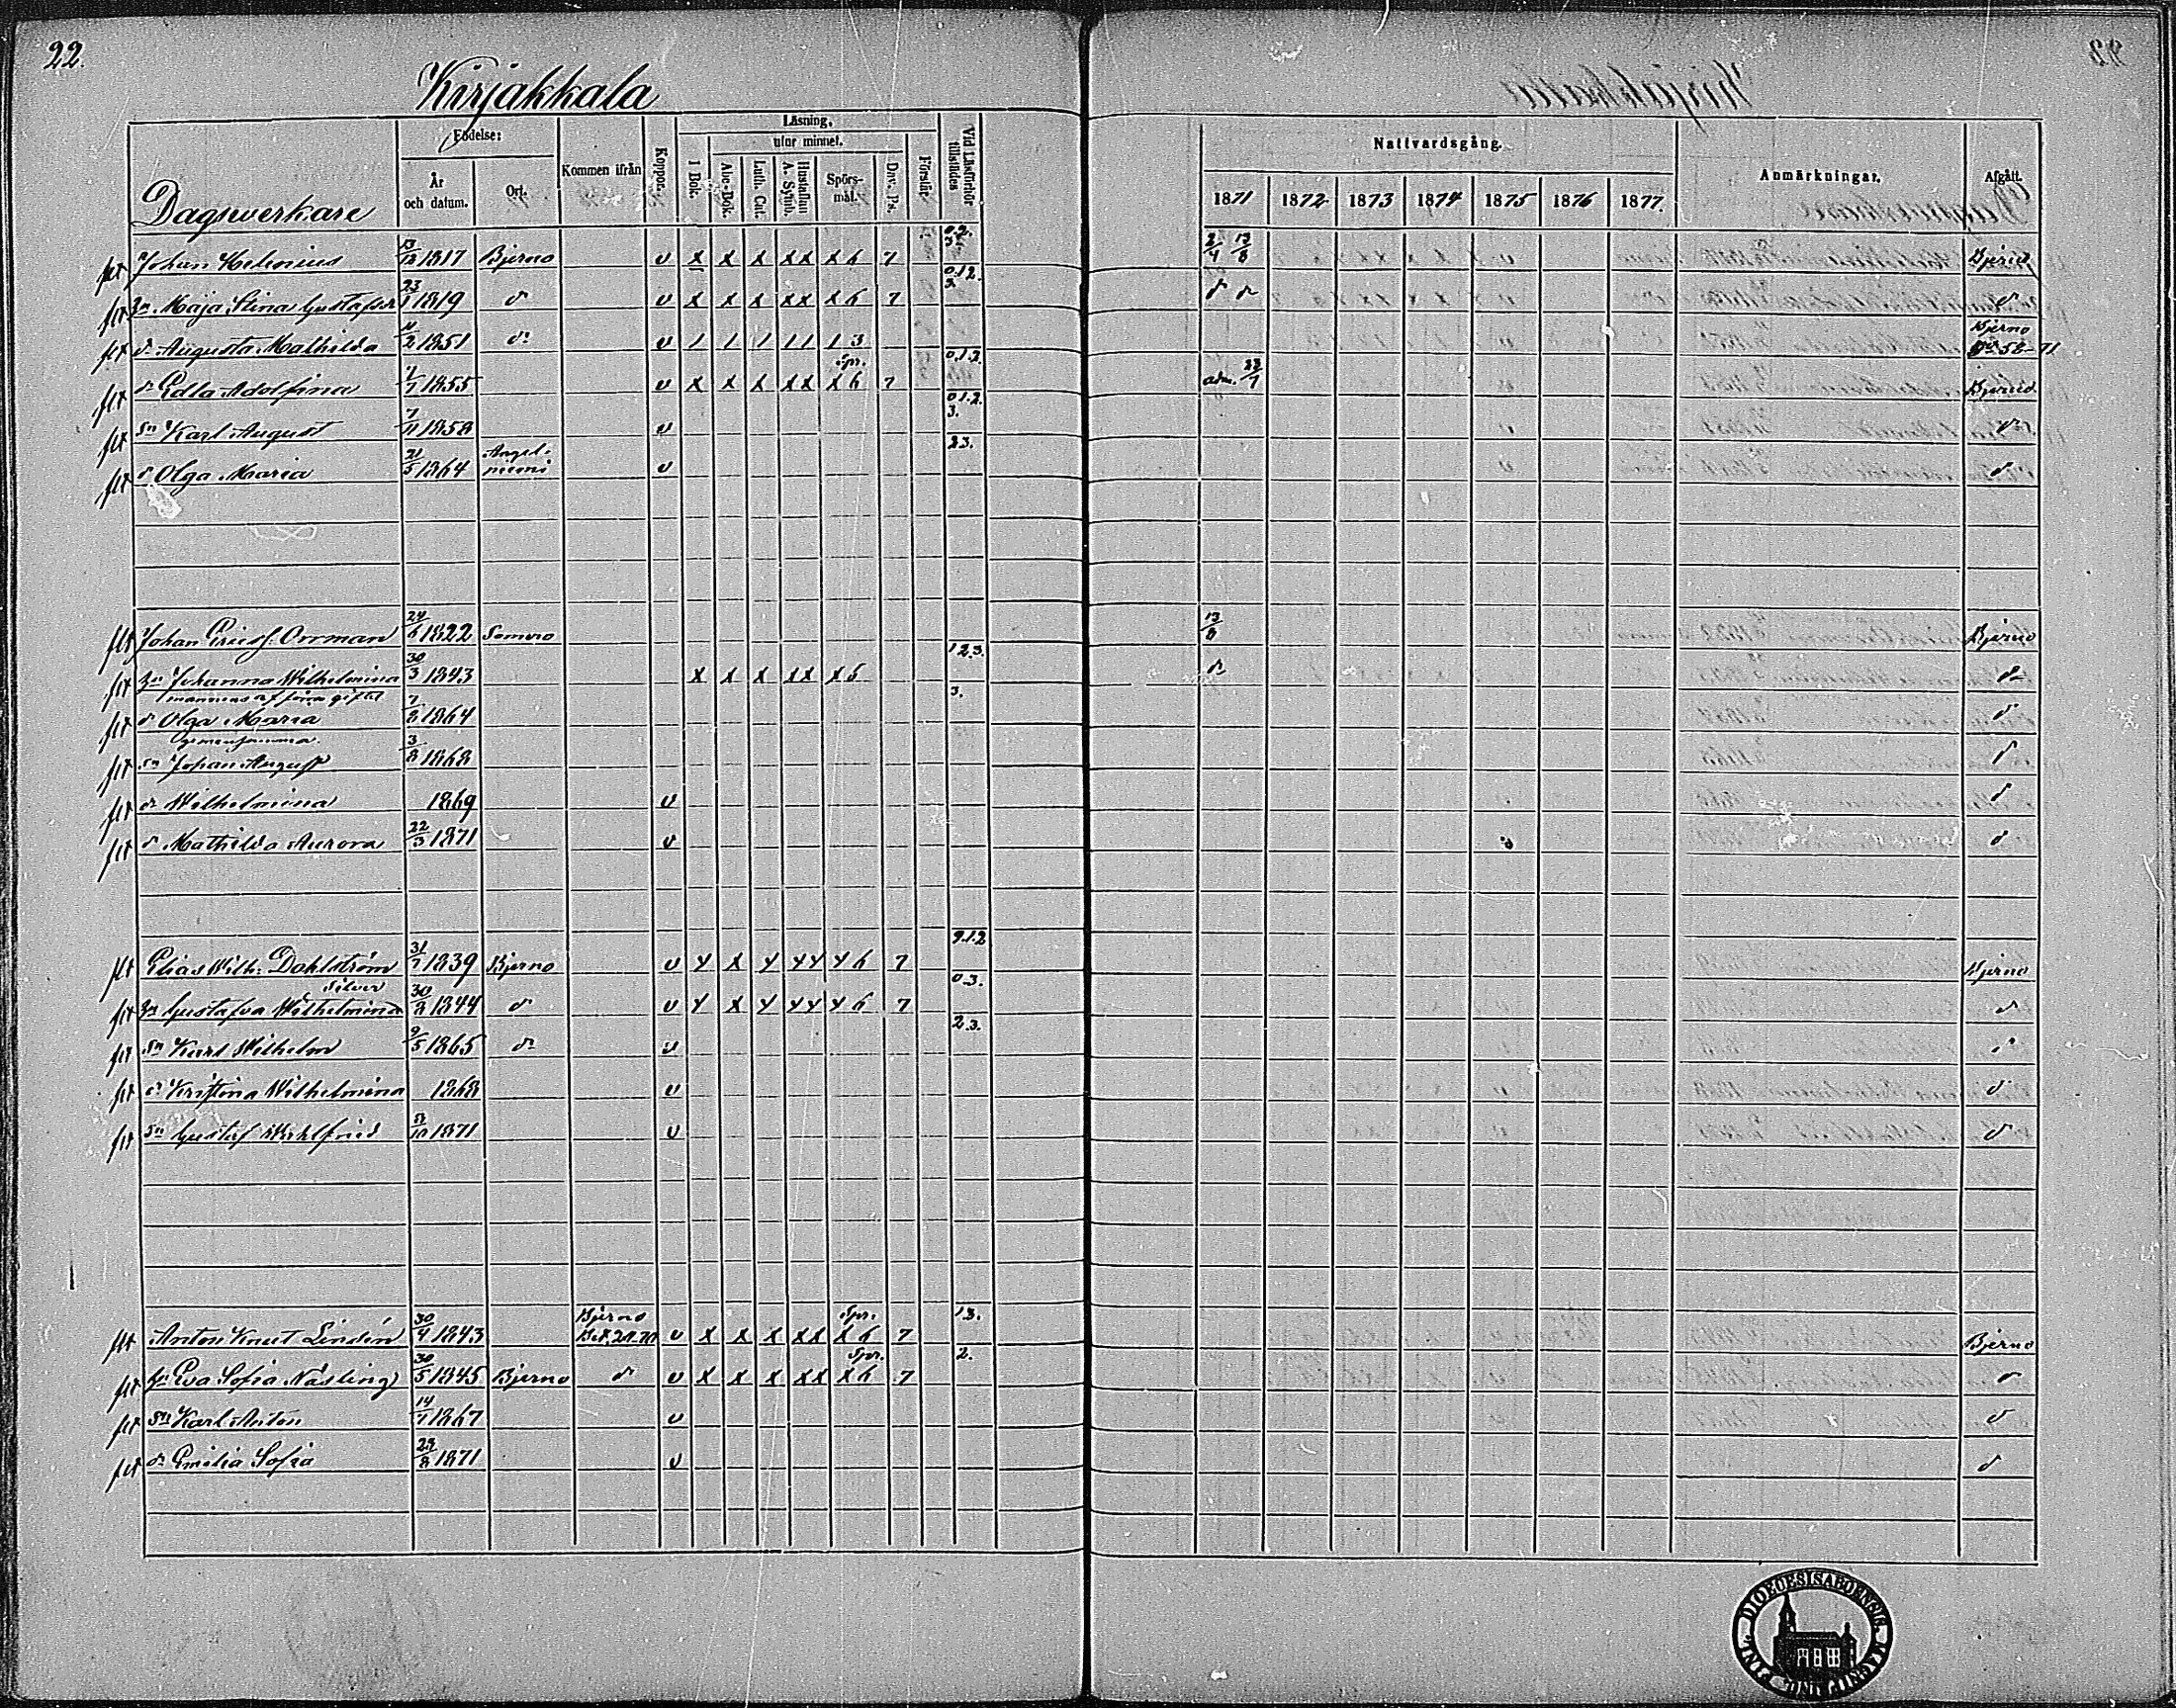 22.
Kirjakkala
Dagsverkare
Födelse:
År och datum.
Ort.
Kommen ifrån
Koppor.
Läsning,
I Bok.
utur minnet.
Abc-Bok.
Luth. Cat.
Hustaflan A. Symb.
Spörs-mål.
Dav. Ps.
Förstår.
Vid Läsförhör tillstädes
Nattvardsgång.
1871 1872 1873 1874 1875 1876 1877.
Anmärkningar.
Afgått.
flt Johan Helenius 13/12 1817 Bjerno v x x x xx x 6 7 0.2. 3. 2/4 13/8 Bjerno
flt Hu Maja Stina Gustafsdr 23/1 1819 do v x x x xx x 6 7 0.1.2. 3. d d d
flt dr Augusta Mathilda 11/2 1851 do v 1 1 1 11 1 3 Bjerno No 58-71
flt dr Edla Adolfina 1/7 1855 v x x x xx Spr. x 6 7 0.1.2. adm. 23/7 Bjerno
flt sn Karl August 7/11 1858 v 0.1.2. 3. do
flt d Olga Maria 21/5 1864 Angelniemi v 2.3. d
flt Johan Ericss. Orrman 24/6 1822 Somero 13/8 Bjerno
flt Hu Johanna Wilhelmina 30/3 1843 x x x xx x 5 1.2.3. d d
mannens af förra giftet
flt d Olga Maria 7/8 1864 3. d
gemensamma.
flt sn Johan August 3/8 1868 d
flt dr Wilhelmina 1869 v d
flt d Mathilda Aurora 22/3 1871 v d
flt Elias Wilh. Dahlström 31/7 1839 Bjerno v x x x xx x 6 7 0.1.2 Bjerno
Silver
flt Hu Gustafva Wilhelmina 30/8 1844 d v x x x xx x 6 7 0.3. d
flt sn Karl Wilhelm 9/5 1865 do v 2.3. d
flt d Kristina Wilhelmina 1868 v d
flt sn Gustaf Wilhlfried 1871 v d
flt Anton Knut Lindén 30/4 1843 Bjerno Bet. 20.71 v x x x xx Spr. x 6 7 1.3. Bjerno
flt Hu Eva Sofia Näsling 30/5 1845 Bjerno d v x x x xx Spr. x 6 7 2. d
flt sn Karl Anton 14/7 1867 v d
flt dr Emilia Sofia 23/8 1871 v d
DIOECESIS ABOENSIS